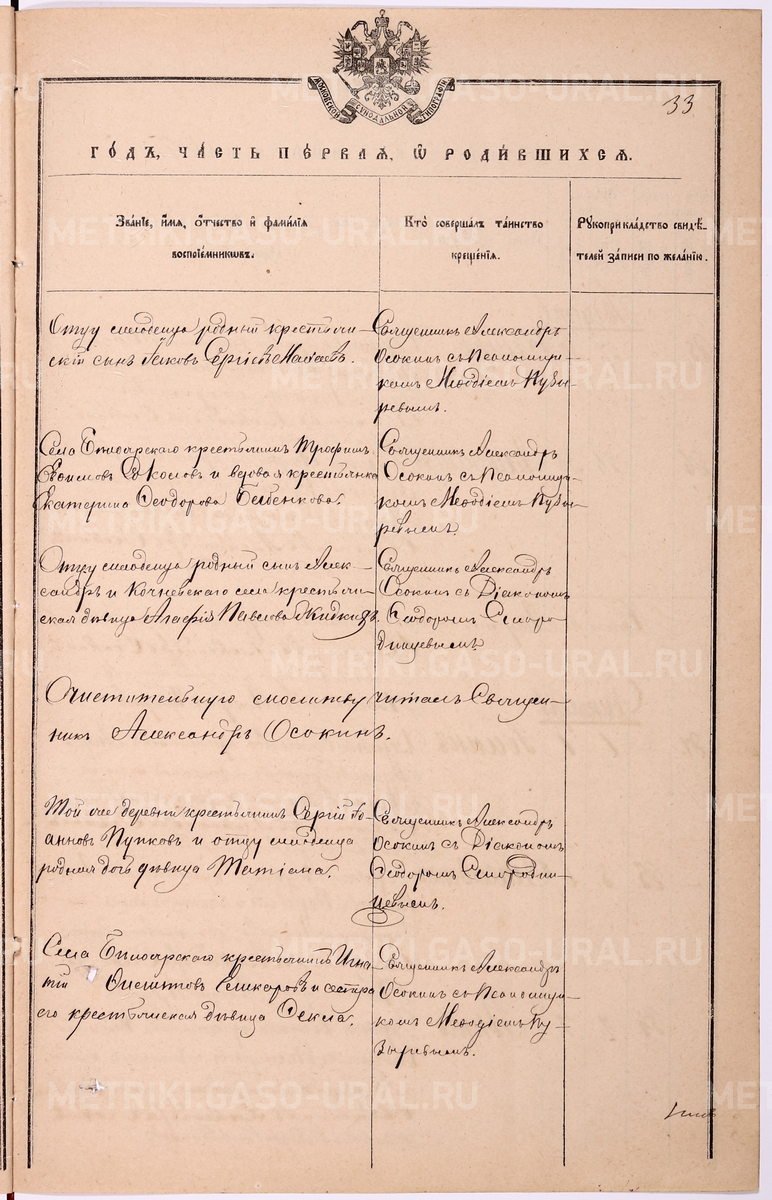 МОСКОВСКОЙ СИНОДАЛЬНОЙ ТИПОГРАФІИ
33
ГО́ДЪ, ЧА́СТЬ ПЕ́РВАЯ, Ѽ РОДИ́ВШИХСЯ.
Зва́нїе, и҆́мя, ѻ҆́тчество и҆ фами́лїя
воспрїе́мникѡвъ.
Кто̀ совершалъ та́инство
креще́нїя.
Рꙋкоприкла́дство свидѣ́-
телей за́писи по жела́нїю.
Отцу младенца родный крестьян-
скій сынъ Іаковъ Сергіевъ
Священникъ Александръ
Осокинъ съ Псаломщи-
комъ Меѳодіемъ Пузы-
ревымъ.
Села крестьянинъ Трофимъ
Евѳимовъ Соколовъ и вдовая крестьянка
Екатерина Ѳеодорова
Священникъ Александръ
Осокинъ съ Псаломщи-
комъ Меѳодіемъ Пузы-
ревымъ.
Отцу младенца родный сынъ Алек-
сандръ и Кочневскаго села крестьян-
ская дѣвица Агафія Павлова
Священникъ Александръ
Осокинъ съ Діакономъ
Ѳеодоромъ Сморо-
динцевымъ.
Очистительную молитву читалъ Священ-
никъ Александръ Осокинъ.
Той же деревни крестьянинъ Сергій Іо-
анновъ Пупковъ и отцу младенца
родная дочь дѣвица Татіана.
Священникъ Александръ
Осокинъ съ Діакономъ
Ѳеодоромъ Смородин-
цевымъ.
Села крестьянинъ Игна-
тій и сестра
его крестьянская дѣвица Ѳекла.
Священникъ Александръ
Осокинъ съ Псаломщи-
комъ Меѳодіемъ Пу-
зыревымъ.
METRIKI.GASO-URAL.RU